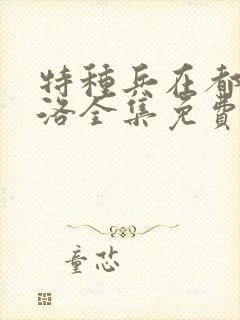 特種兵在都
洛全集免費
童恐